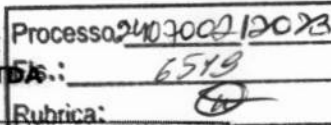 Processo 2407002/2023
TDA
Fls.: 6519
Rubrica: